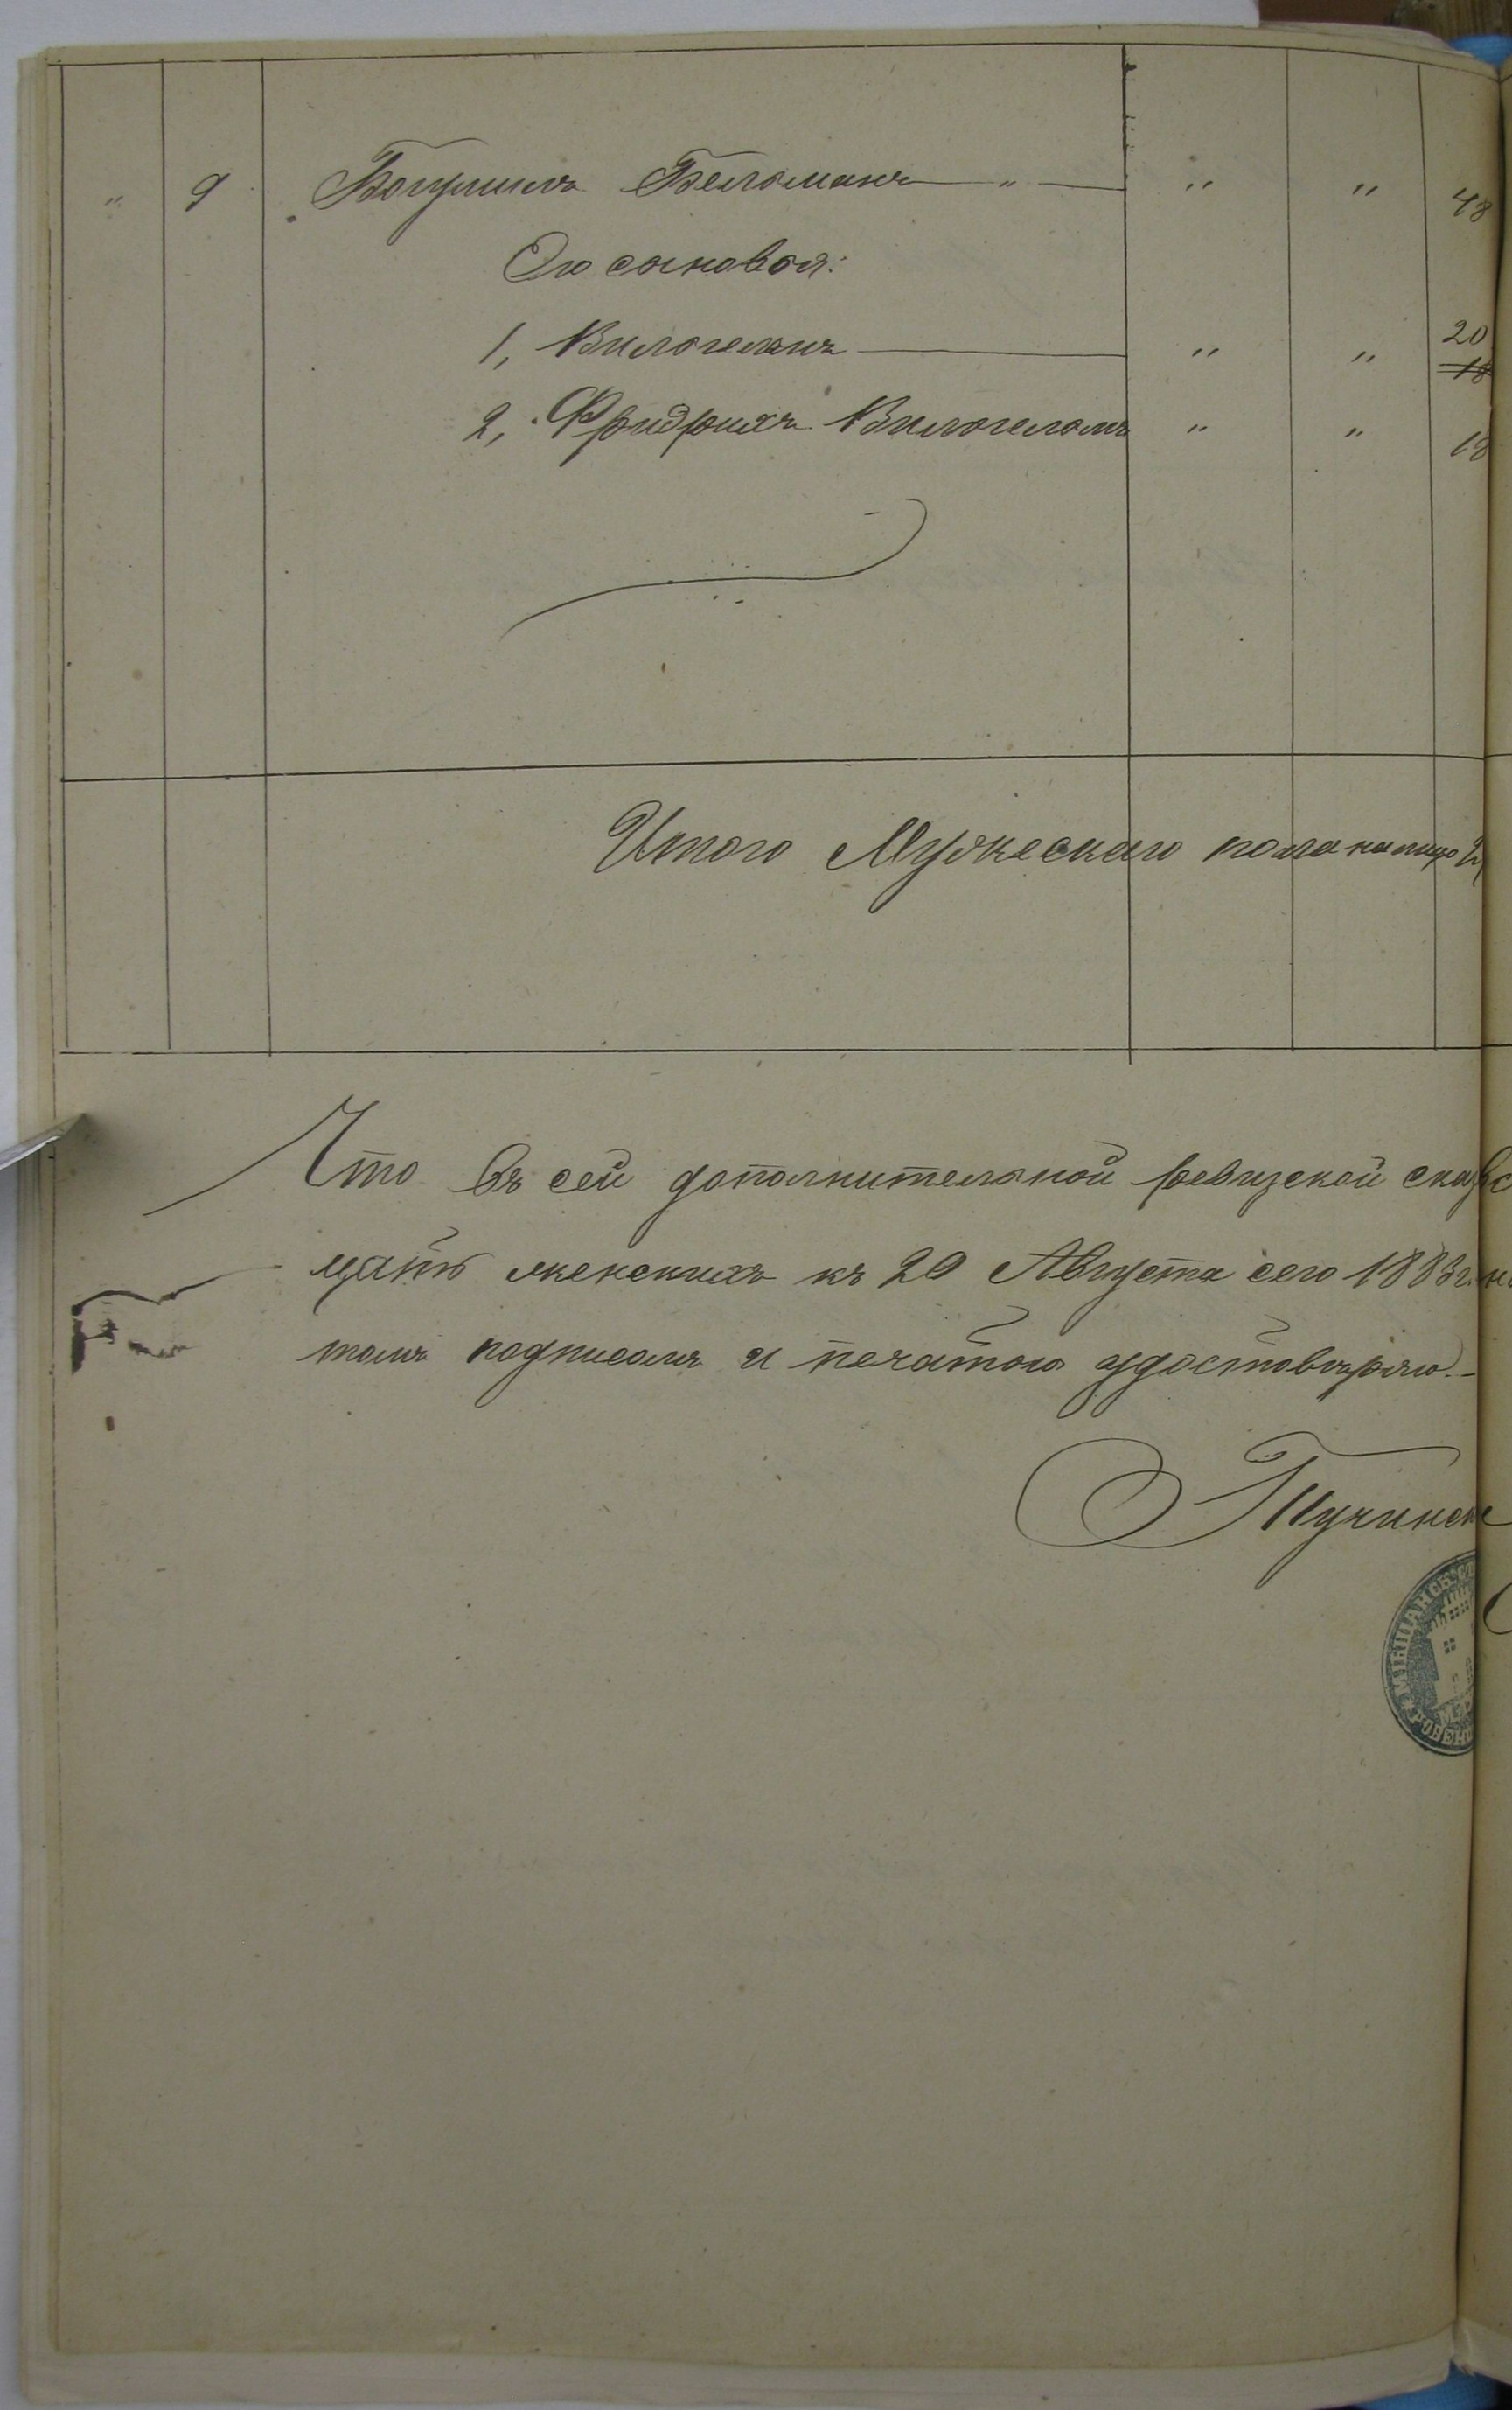 " 9 Богумилъ Бельманъ " " " 48
Его сыновья:
1, Вильгельмъ " " 20 18
2, Фридрихъ Вильгельмъ " " 18
Итого Мужескаго пола налицо
Что въ сей дополнительной ревизской сказ
цать женскихъ къ 20 Августа сего 1883 г.
томъ подписомъ и печатью удостовѣряю.-
Пучинск
МѢЩАНСК. СТ
РОВЕНС